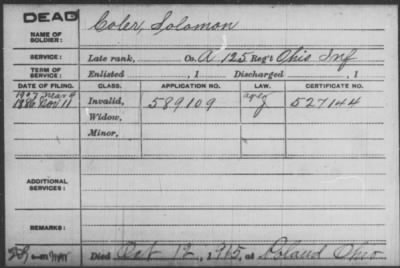 DEAD
Coler, Solomon
NAME OF SOLDIER:
SERVICE: Late rank, Co. A 125 Reg't Ohio Inf
TERM OF SERVICE: Enlisted , 1 Discharged , 1
DATE OF FILING. CLASS. APPLICATION NO. LAW. CERTIFICATE NO.
1907
1886 Nov 11 Invalid, 589109 J 527144
Widow,
Minor,
ADDITIONAL SERVICES:
REMARKS:
Died Oct 12, 1915, at Poland Ohio